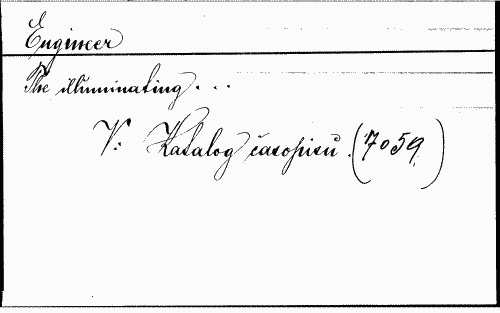 Engineer
The illuminating...
V: Katalog časopisů. (7059)